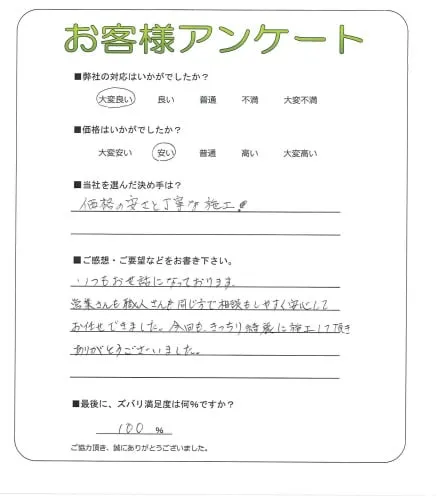 お客様アンケート
■弊社の対応はいかがでしたか?
大変良い 良い 普通 不満 大変不満
■価格はいかがでしたか?
大変安い 安い 普通 高い 大変高い
■当社を選んだ決め手は?
価格の安さと丁寧な施工!
■ご感想・ご要望などをお書き下さい。
いつもお世話になっております。
営業さんも職人さんも同じ方で相談もしやすく安心して
お任せできました。今回も、きっちり綺麗に施工して頂き
ありがとうございました。
■最後に、ズバリ満足度は何%ですか?
100 %
ご協力頂き、誠にありがとうございました。